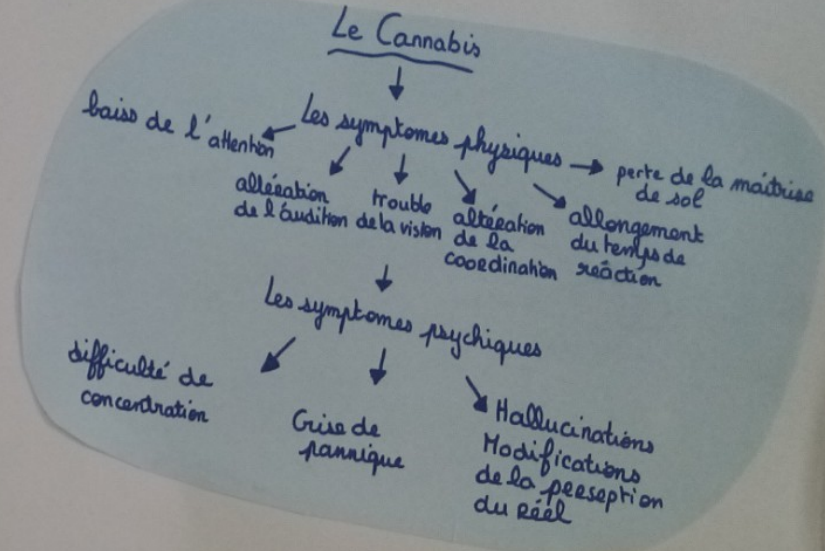 Le Cannabis
Les symptomes physiques
baiss de l'attention
altération
de l'áudition
trouble
de la vision
altération
de la
coordination
allongement
du temps de
reáction
perte de la maítrise
de sol
Les symptomes psychiques
difficulté de
concentration
Crise de
pannique
Hallucinations
Modifications
de la perseption
du réel